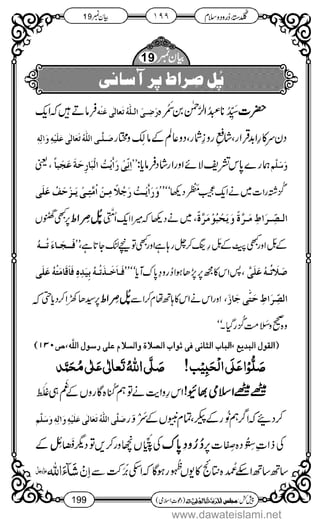 گلدستۂ دُرود و سلام
۱۹۹
بیان نمبر 19
بیان نمبر 19
پُل صِراط پر آسانی
حضرت سَیِّدُنا عبدالرحمٰن بن سَمُرَہ رَضِیَ اللّٰہُ تَعَالٰی عَنْہ فرماتے ہیں کہ ایک
دن سرکارِ والا قدر، شافعِ روزِ شمار، دو عالم کے مالِک و مختار صَلَّی اللّٰہُ تَعَالٰی عَلَیْہِ وَاٰلِہٖ
وَسَلَّم ہمارے پاس تشریف لائے اور ارشاد فرمایا: ’’اِنِّیْ رَاَیْتُ الْبَارِحَةَ عَجَبًا، یعنی
گزشتہ رات میں نے ایک عجیب منظر دیکھا‘‘، ’’وَرَاَیْتُ رَجُلًا مِّنْ اُمَّتِیْ یَزْحَفُ عَلَی
الصِّرَاطِ مَرَّۃً وَّ یَحْبُوْ مَرَّۃً، میں نے دیکھا کہ میرا ایک اُمَّتی پُل صِراط پر کبھی گھٹنوں
کے بل اور کبھی پیٹ کے بل گھسٹ کر چل رہا ہے اور کبھی تو لٹکنے جاتا ہے‘‘، ’’فَجَاءَتْهُ
صَلَاتُهٗ عَلَیَّ، پس اس کا مجھ پر پڑھا ہوا دُرُودِ پاک آیا‘‘، ’’فَاَخَذَتْهُ بِیَدِہٖ فَاَقَامَتْهُ عَلَی
الصِّرَاطِ حَتّٰی جَازَ، اور اس نے اس کا ہاتھ تھام کر اسے پُل صِراط پر سیدھا کھڑا کر دیا یہاں تک کہ
وہ صحیح و سلامت گزر گیا۔‘‘
(القول البدیع ،الباب الثانی فی ثواب الصلاة والسلام علی رسول اللہ،ص ۱۳۰)
صَلُّوا عَلَی الْحَبِیْب! صَلَّی اللّٰہُ تَعَالٰی عَلٰی مُحَمَّد
میٹھے میٹھے اسلامی بھائیو! اس روایت نے تو ہم گُناہ گاروں کے غم ہی غلط
کر دئیے کہ اگر ہم گناہوں سے دُور رہیں، تمام نبیوں کے سَروَر صَلَّی اللّٰہُ تَعَالٰی عَلَیْہِ وَاٰلِہٖ وَسَلَّم
کی ذاتِ سِتودہ صِفات پر دُرُودِ پاک کی پابندی کریں تو دیگر فضائل کے
ساتھ ساتھ اسکے عمدہ نتائج کا یوں ظہور ہوگا کہ اسکی برکت سے اِنْ شَآءَ اللّٰہ عَزَّوَجَلَّ
199
www.dawateislami.net